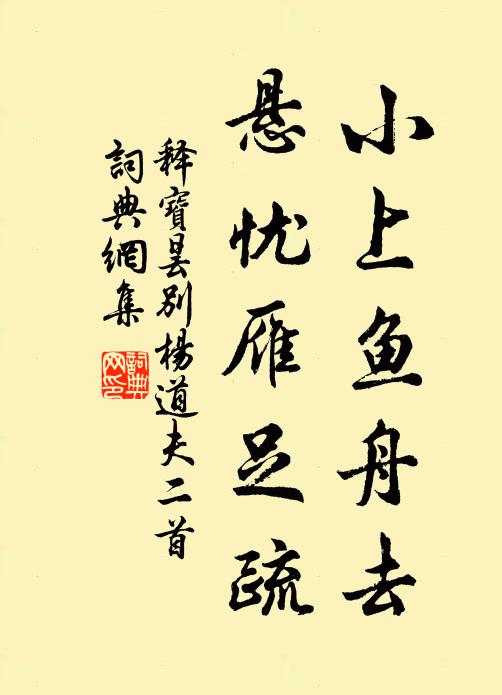 小上鱼舟去
悬忧雁足疏
释寶曇别楊道夫二首
詞典網集
詞典网印